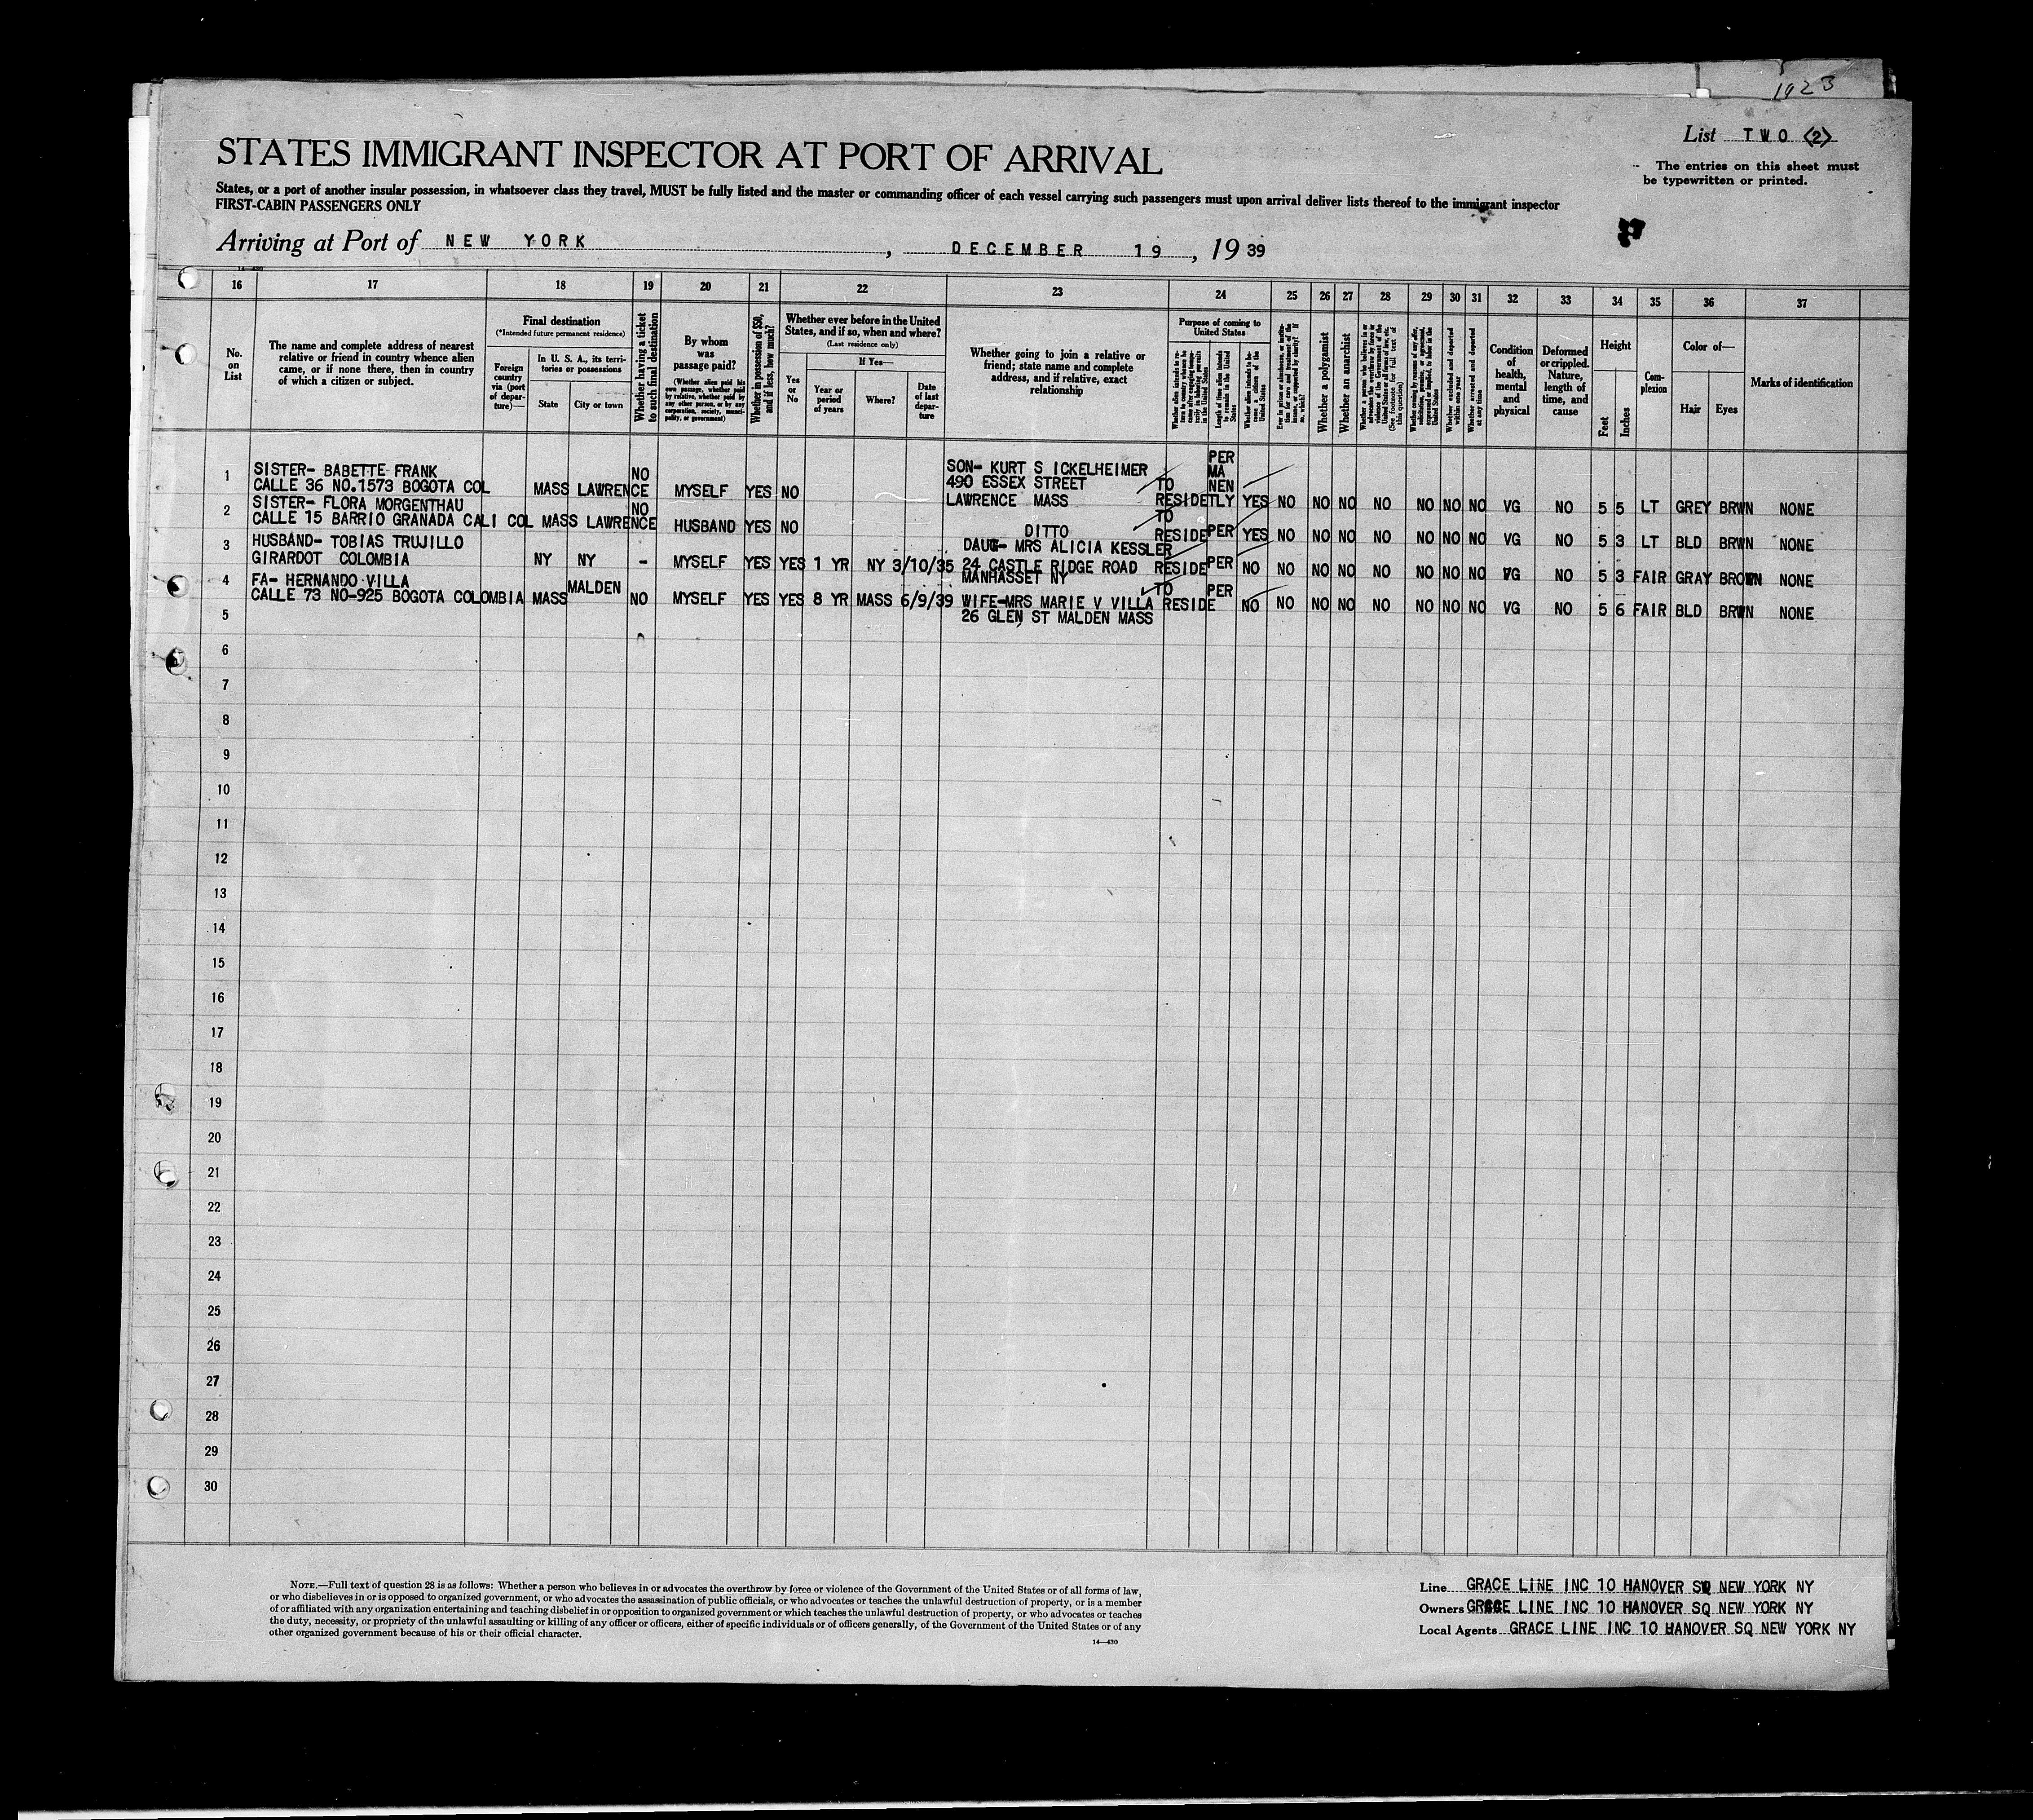 1923
List TWO (2)
STATES IMMIGRANT INSPECTOR AT PORT OF ARRIVAL
The entries on this sheet must
be typewritten or printed.
States, or a port of another insular possession, in whatsoever class they travel, MUST be fully listed and the master or commanding officer of each vessel carrying such passengers must upon arrival deliver lists thereof to the immigrant inspector
FIRST-CABIN PASSENGERS ONLY
Arriving at Port of NEW YORK, DECEMBER 19, 1939
14—430
16 17 18 19 20 21 22 23 24 25 26 27 28 29 30 31 32 33 34 35 36 37
No. on List
The name and complete address of nearest
relative or friend in country whence alien
came, or if none there, then in country
of which a citizen or subject.
Final destination
(*Intended future permanent residence)
Foreign country via (port of departure)—
In U. S. A., its territories or possessions
State
City or town
Whether having a ticket to such final destination
By whom was passage paid?
(Whether alien paid his own passage, whether paid by relative, whether paid by any other person, or by any corporation, society, municipality, or government)
Whether in possession of $50, and if less, how much?
Whether ever before in the United
States, and if so, when and where?
(Last residence only)
Yes or No
If Yes—
Year or period of years
Where?
Date of last departure
Whether going to join a relative or
friend; state name and complete
address, and if relative, exact
relationship
Purpose of coming to United States
Length of time alien intends to remain in the United States
Whether alien intends to become a citizen of the United States
Whether a polygamist
Whether an anarchist
Whether excluded and deported within one year
Whether arrested and deported at any time
Condition of health, mental and physical
Deformed or crippled. Nature, length of time, and cause
Height
Feet
Inches
Complexion
Color of—
Hair
Eyes
Marks of identification
1 SISTER- BABETTE FRANK
CALLE 36 NO.1573 BOGOTA COL MASS LAWRENCE NO MYSELF YES NO SON- KURT S ICKELHEIMER
490 ESSEX STREET
LAWRENCE MASS TO RESIDE PERMANENTLY YES NO NO NO NO NO NO NO VG NO 5 5 LT GREY BRWN NONE
2 SISTER- FLORA MORGENTHAU
CALLE 15 BARRIO GRANADA CALI COL MASS LAWRENCE NO HUSBAND YES NO DITTO TO RESIDE PER YES NO NO NO NO NO NO NO VG NO 5 3 LT BLD BRWN NONE
3 HUSBAND- TOBIAS TRUJILLO
GIRARDOT COLOMBIA NY NY - MYSELF YES YES 1 YR NY 3/10/35 DAUG- MRS ALICIA KESSLER
24 CASTLE RIDGE ROAD
MANHASSET NY RESIDE PER NO NO NO NO NO NO NO NO VG NO 5 3 FAIR GRAY BROWN NONE
4 FA- HERNANDO VILLA
CALLE 73 NO-925 BOGOTA COLOMBIA MASS MALDEN NO MYSELF YES YES 8 YR MASS 6/9/39 WIFE-MRS MARIE V VILLA
26 GLEN ST MALDEN MASS TO RESIDE PER NO NO NO NO NO NO NO NO VG NO 5 6 FAIR BLD BRWN NONE
5
6
7
8
9
10
11
12
13
14
15
16
17
18
19
20
21
22
23
24
25
26
27
28
29
30
NOTE.—Full text of question 28 is as follows: Whether a person who believes in or advocates the overthrow by force or violence of the Government of the United States or of all forms of law,
or who disbelieves in or is opposed to organized government, or who advocates the assassination of public officials, or who advocates or teaches the unlawful destruction of property, or is a member
of or affiliated with any organization entertaining and teaching disbelief in or opposition to organized government or which teaches the unlawful destruction of property, or who advocates or teaches
the duty, necessity, or propriety of the unlawful assaulting or killing of any officer or officers, either of specific individuals or of officers generally, of the Government of the United States or of any
other organized government because of his or their official character.
14—430
Line GRACE LINE INC 10 HANOVER SQ NEW YORK NY
Owners GRACE LINE INC 10 HANOVER SQ NEW YORK NY
Local Agents GRACE LINE INC 10 HANOVER SQ NEW YORK NY